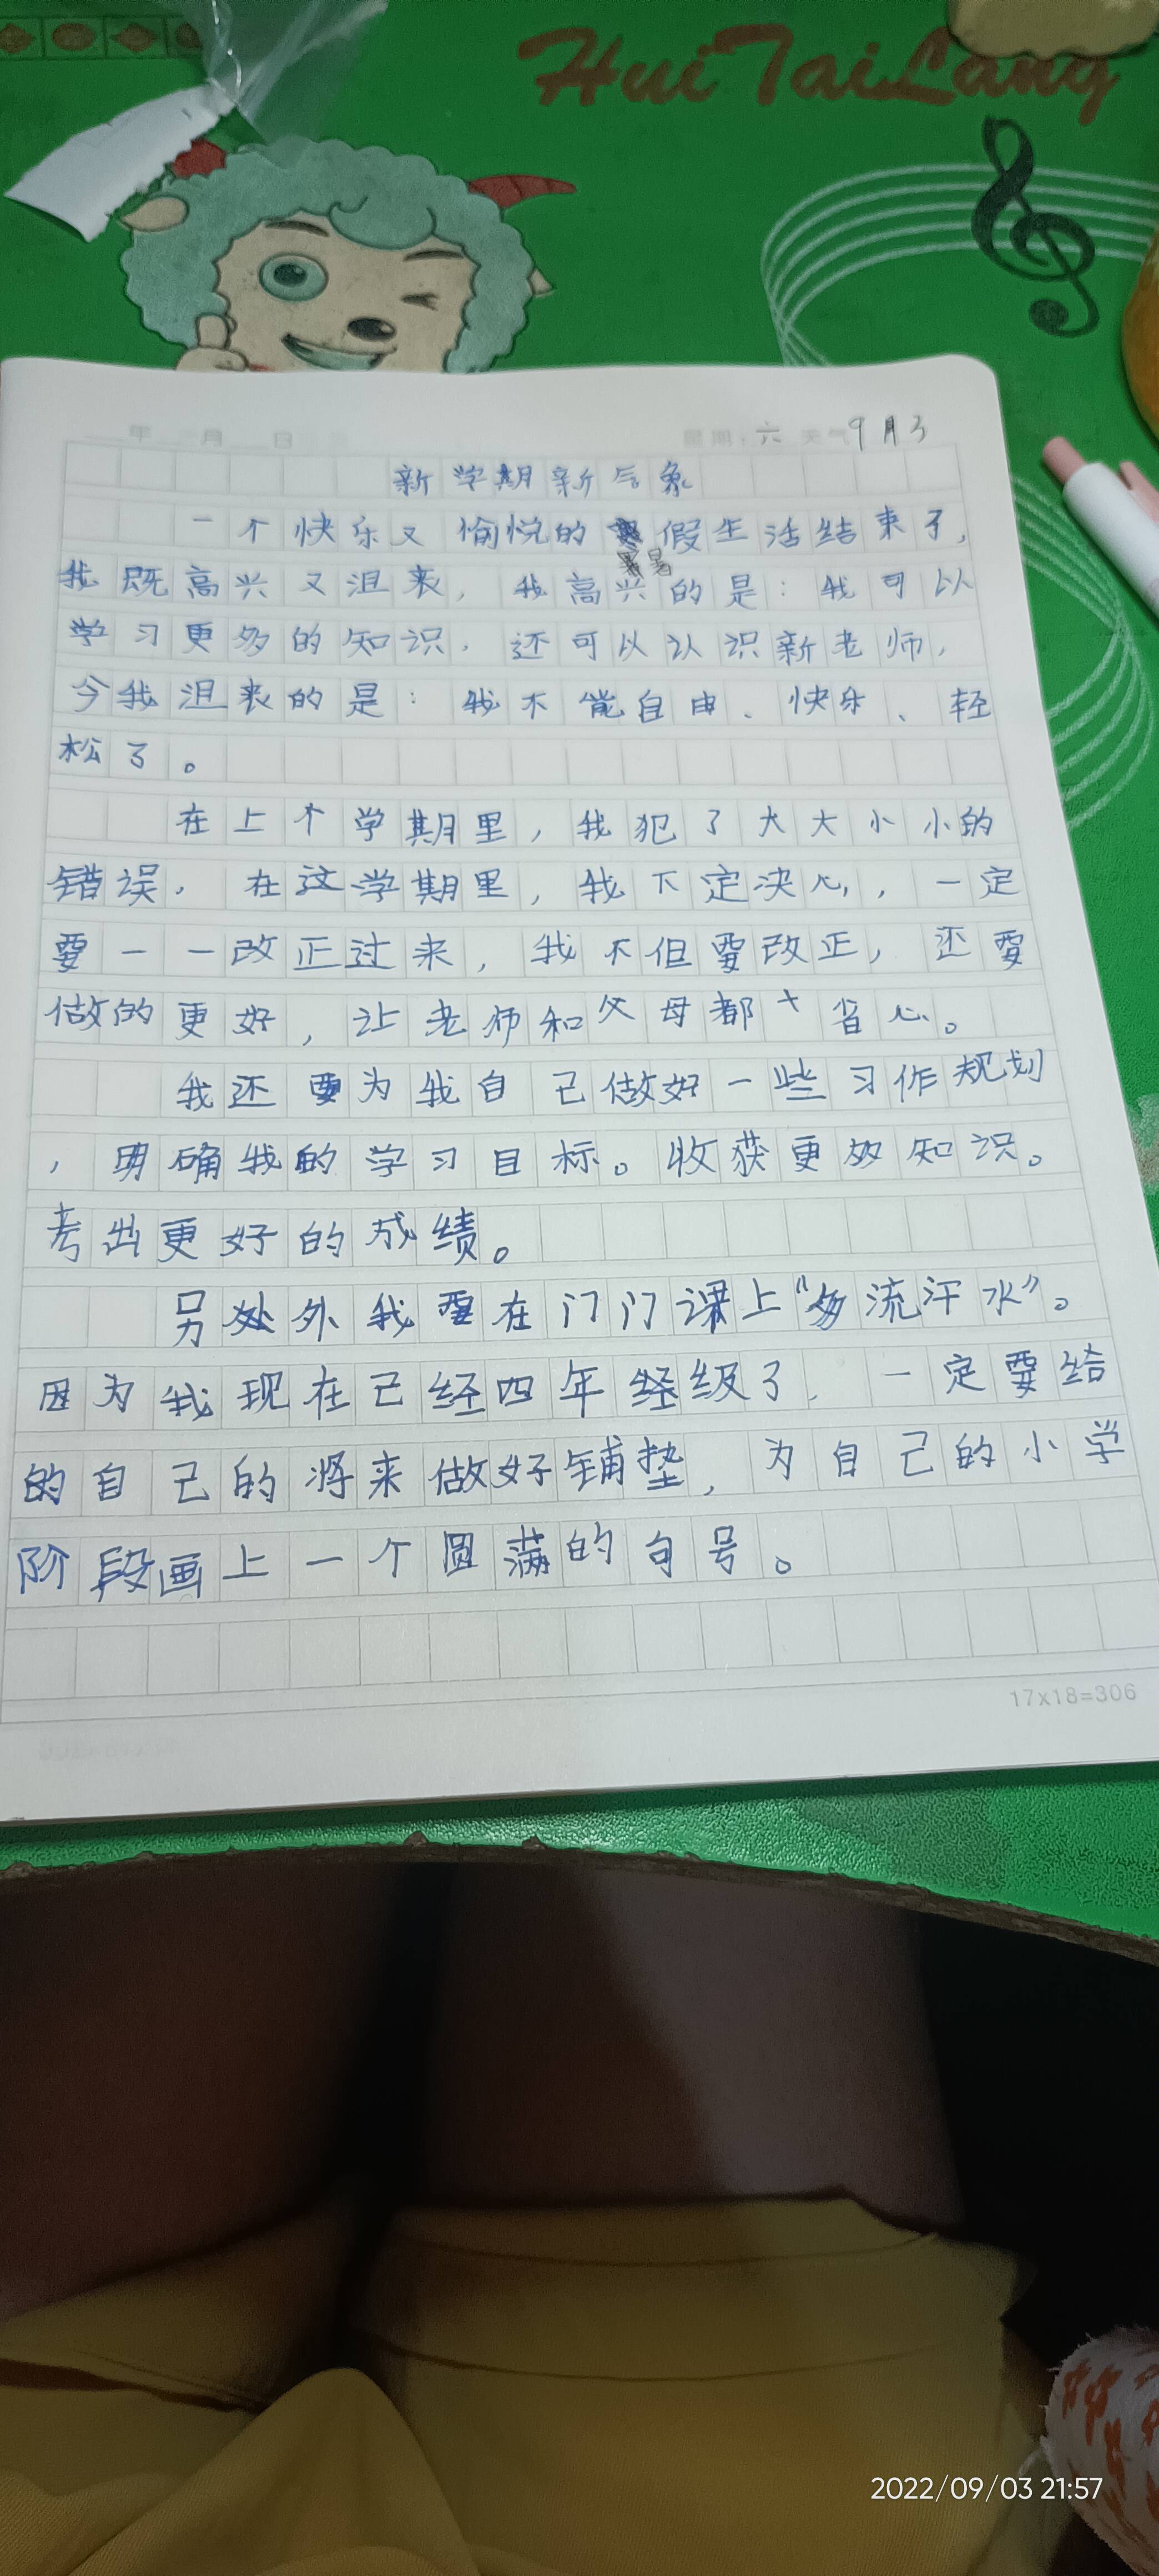 Hui Tai Lang
年 月 日 星期：六 天气 9月3
新学期新气象
一个快乐又愉悦的暑假生活结束了，
我既高兴又沮丧，我高兴的是：我可以
学习更多的知识，还可以认识新老师，
令我沮丧的是：我不能自由、快乐、轻
松了。
在上个学期里，我犯了大大小小的
错误，在这学期里，我下定决心，一定
要一一改正过来，我不但要改正，还要
做的更好，让老师和父母都十省心。
我还要为我自己做好一些习作规划
，明确我的学习目标。收获更多知识。
考出更好的成绩。
另处外我要在门门课上“多流汗水”。
因为我现在已经四年经级了，一定要给
的自己的将来做好铺垫，为自己的小学
阶段画上一个圆满的句号。
17x18=306
2022/09/03 21:57